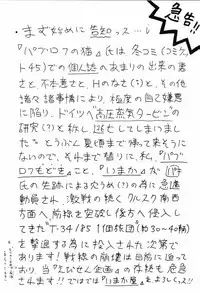 急告!!
・まず始めに告知っス…し
『パブロフの猫』氏は冬コミ(コミケ
ット45)での個人誌のあまりの出来の悪
さと、不本意さと、Hのなさ(?)と、その他
諸々諸事情により、極度の自己嫌悪
に陥り、ドイツへ高圧蒸気タービン
の研究(?)と称し逃亡してしまいまし
た。とうぶん夏頃まで帰って来そうに
ないので、それまで替りに、私、『パブ
ロフもどき』こと、『いまか』が
氏の失踪による穴うめ(?)の為に急遽
動員され、激戦の続くクルスク南西
方面へ、前線を突破し後方へ侵入して
きた"T-34/85 1個旅団(約30~40輌)
を撃退する為に投入された次第で
あります!戦線の崩壊は目前に迫って
おり、当『えいせん企画』の存続も危急
されます!!ではでは『いまか屋』をよろしくっス!!